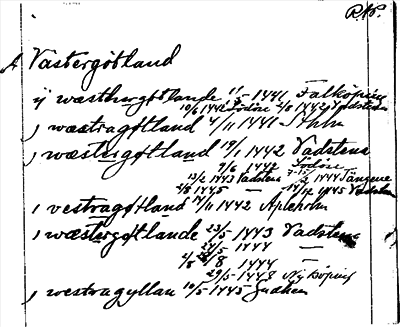 RP.
A Västergötland
ij wæsthergøtlande 11/5-1441 Falköping
10/6 1442 Lödöse 2/8 1442 Vadstena
i wæstragøtland 4/11 1441 Sthlm
i wæstergøtland 19/1 1442 Vadstena
9/6 1442 Lödöse
13/2 1443 Vadstena 1444 Tängene
2/8 1445 — 14/12 1445 Vadstena
i vestragøtland 14/11 1442 Axleholm
i wæstergøtlande 23/5 1443 Vadstena
24/5 1444 —
8/8 1444 —
29/5-1448 Nyköping
i vestragyllan 10/5-1445